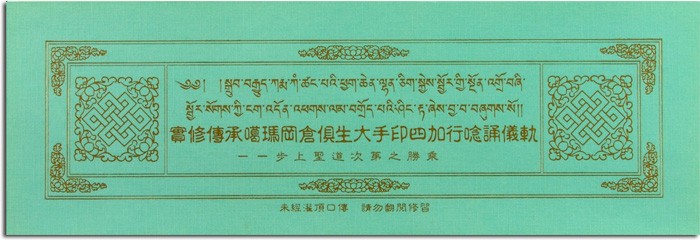 ༄༅། །སྒྲུབ་བརྒྱུད་ཀརྨ་ཀཾ་ཚང་པའི་ཕྱག་ཆེན་ལྷན་ཅིག་སྐྱེས་སྦྱོར་གྱི་སྔོན་འགྲོ་བཞི་
སྦྱོར་སོགས་ཀྱི་ངག་འདོན་འཕགས་ལམ་བགྲོད་པའི་ཤིང་རྟ་ཞེས་བྱ་བ་བཞུགས་སོ།།
實修傳承噶瑪岡倉俱生大手印四加行唸誦儀軌
一一步上聖道次第之勝乘
未經灌頂口傳 請勿翻閱修習